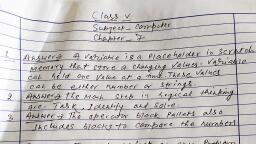 Class V
Subject - Computer
Chapter - 7
1 Answer → A variable is a Placeholder in Scratch
memory that store a changing values. Variable
can held one value at a time. These values
can be either number or strings
2 Answer → The main steps in logical thinking
are: Task, Identify and Solve
3 Answer → The operator block Pallets also
includes blocks to compare the numbers